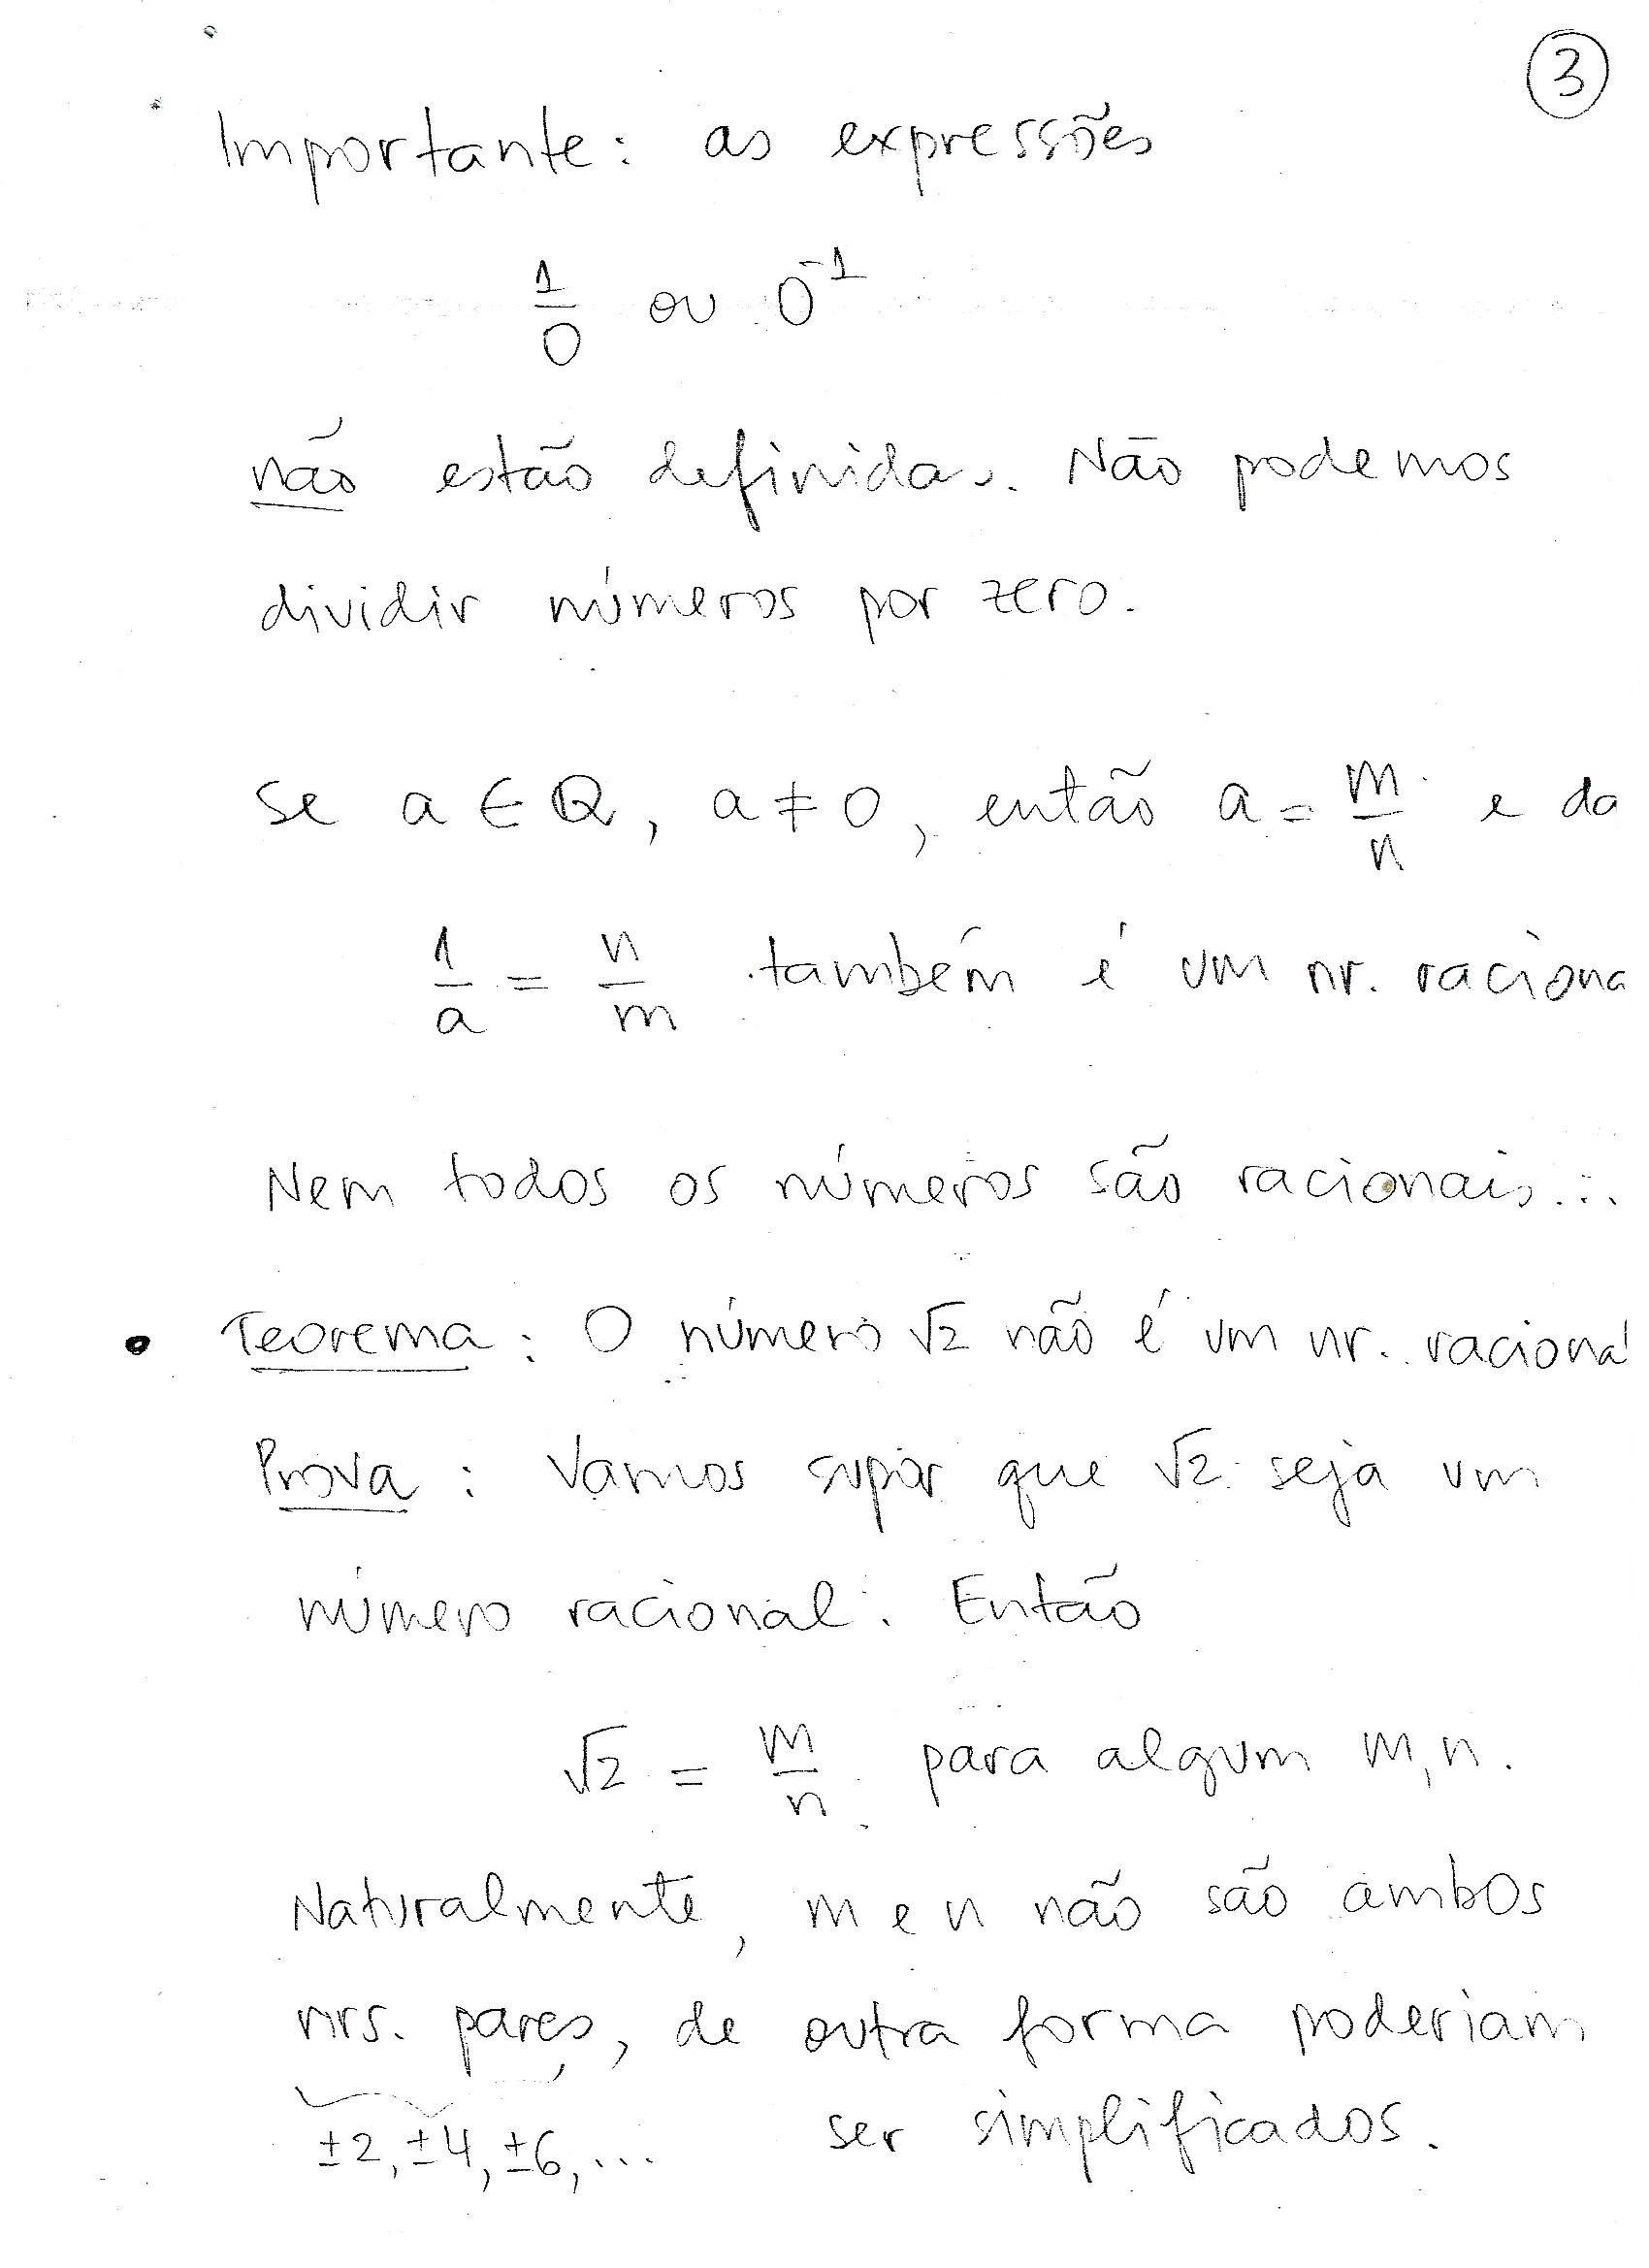 3
Importante: as expressões
1/0 ou 0⁻¹
não estão definidas. Não podemos
dividir números por zero.
Se a ∈ ℚ, a ≠ 0, então a = m/n e da
1/a = n/m também é um nr. raciona
Nem todos os números são racionais...
• Teorema: O número √2 não é um nr. raciona
Prova: Vamos supor que √2 seja um
número racional. Então
√2 = m/n para algum m,n.
Naturalmente, m e n não são ambos
nrs. pares, de outra forma poderiam
±2, ±4, ±6, ... ser simplificados.